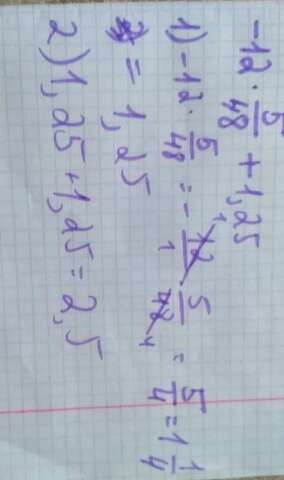 -12 · 5/48 + 1,25
1) -12 · 5/48 = - 12/1 · 5/48 = 5/4 = 1 1/4
= 1,25
2) 1,25 + 1,25 = 2,5